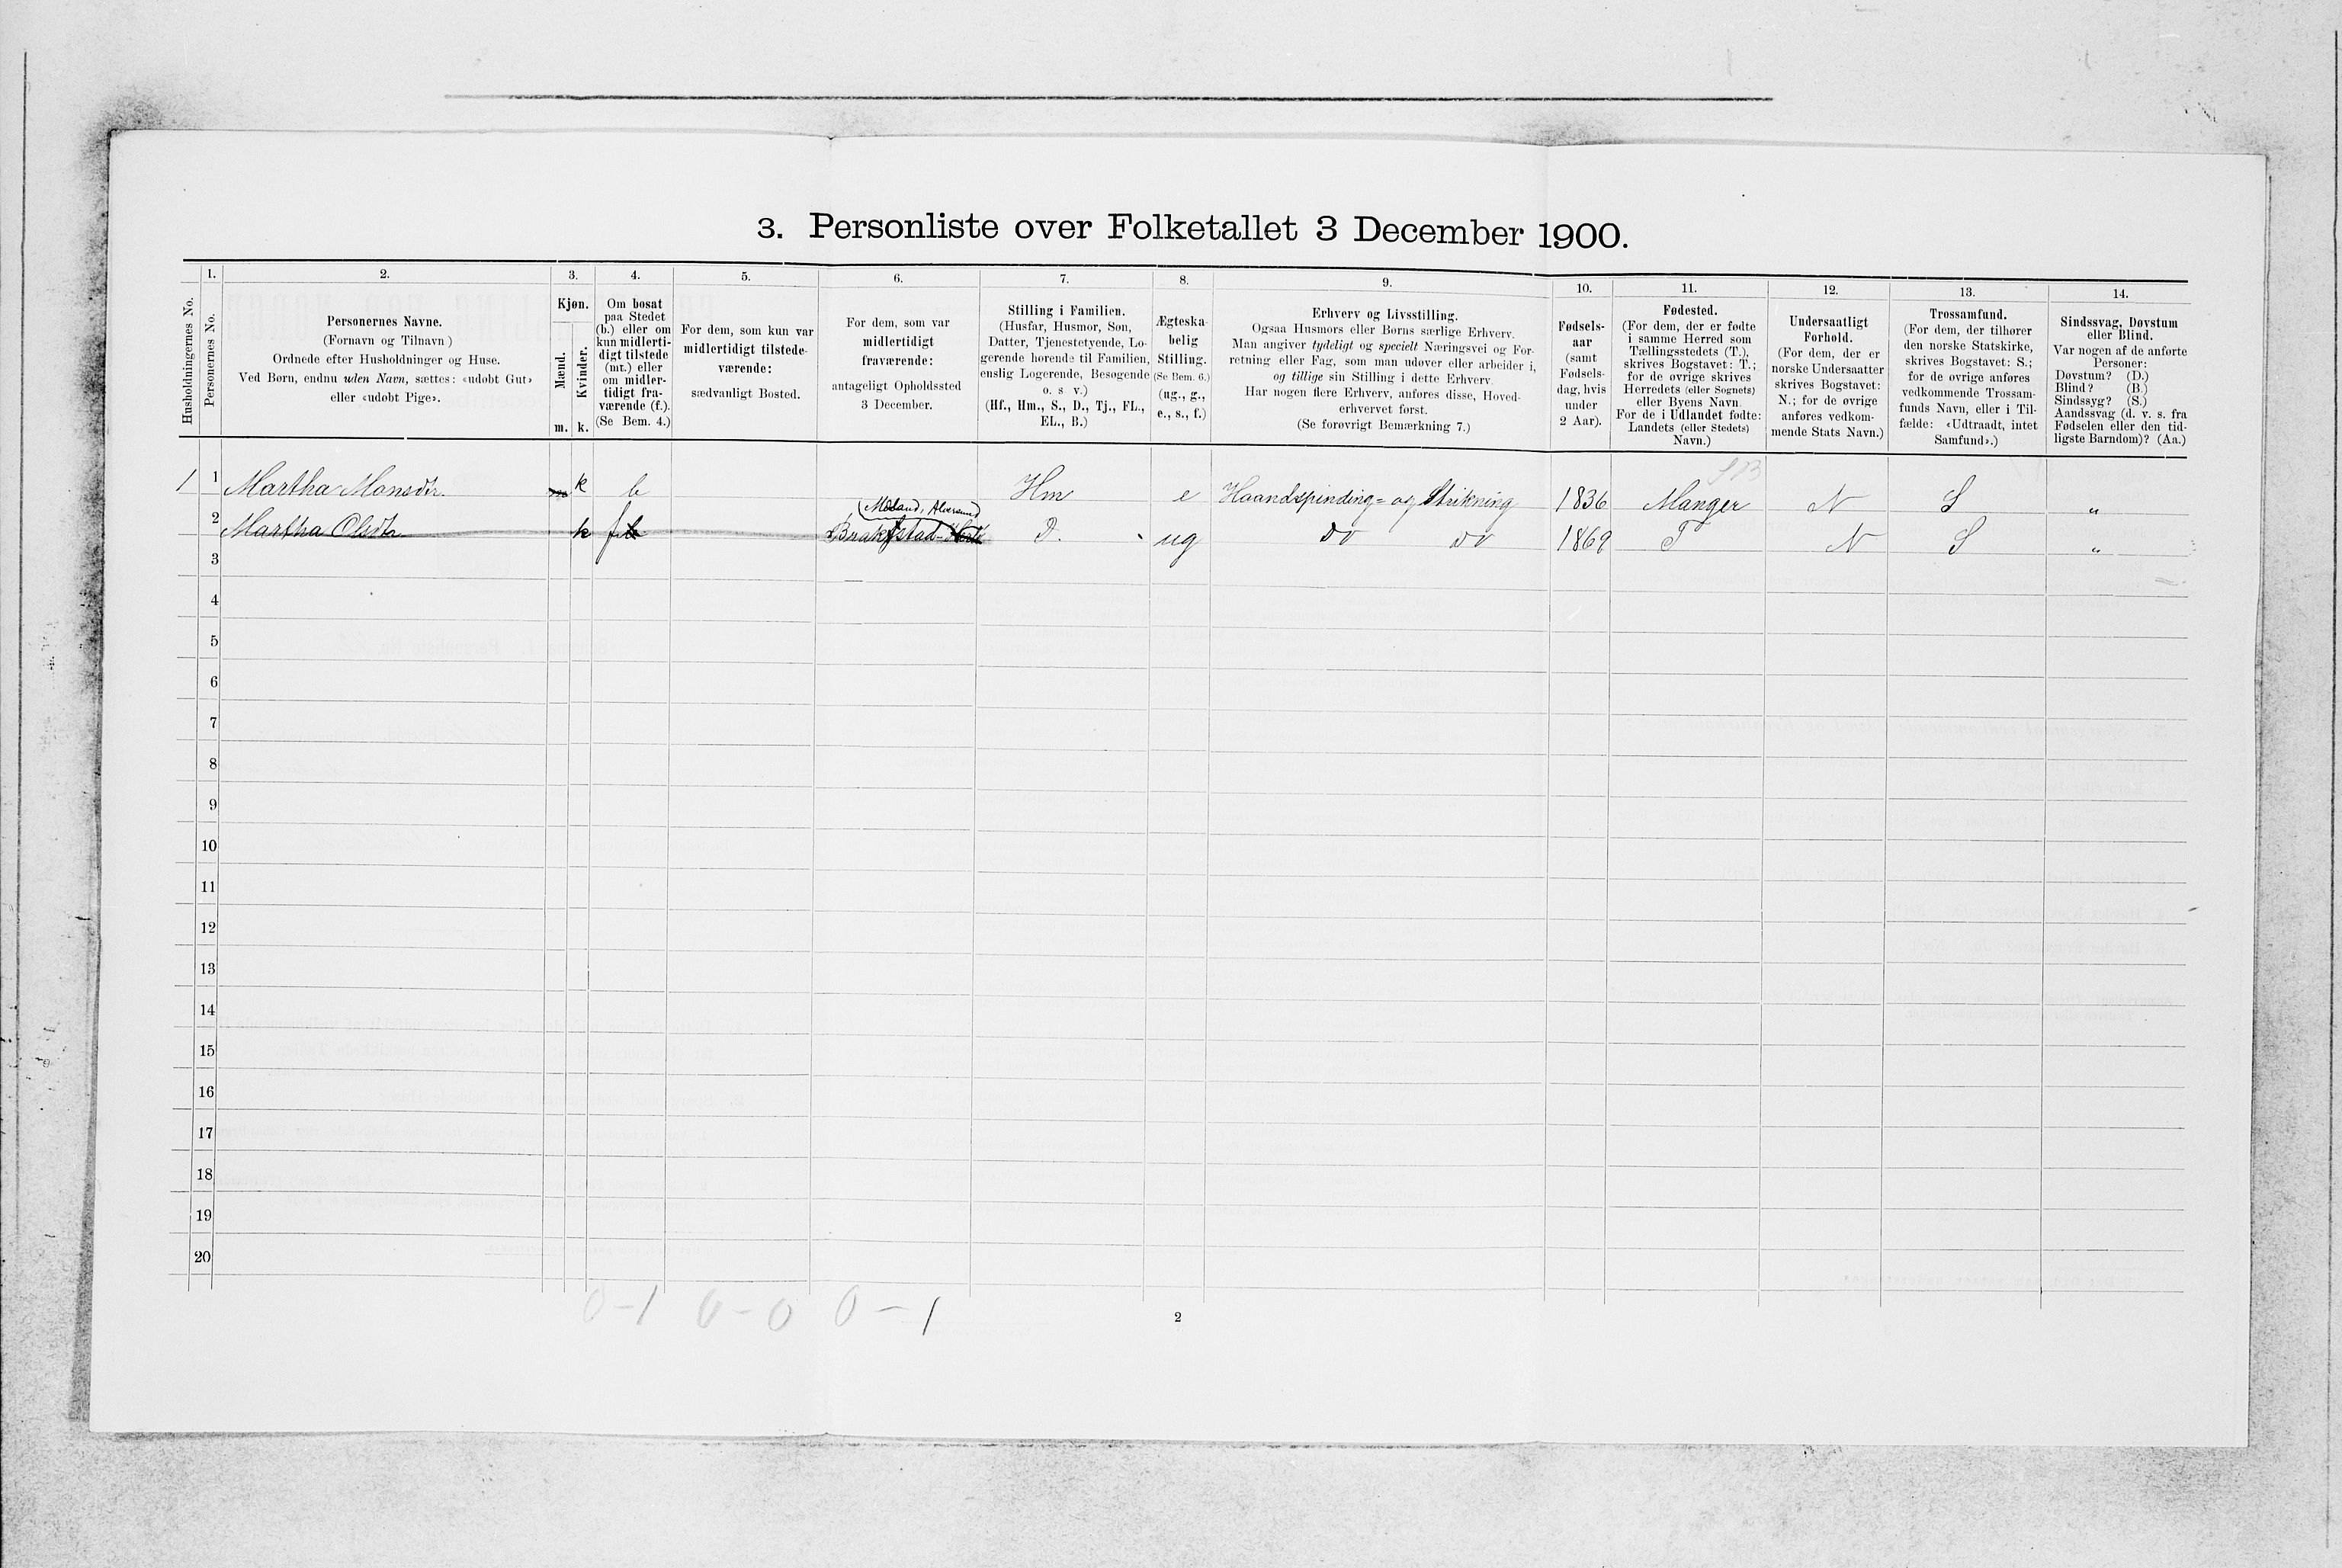 3. Personliste over Folketallet 3 December 1900.
Husholdningernes No.
1.
Personernes No.
2.
Personernes Navne.
(Fornavn og Tilnavn)
Ordnede efter Husholdninger og Huse.
Ved Børn, endnu uden Navn, sættes: «udøbt Gut»
eller «udøbt Pige».
3.
Kjøn.
Mænd.
Kvinder.
m. k.
4.
Om bosat
paa Stedet
(b.) eller om
kun midlerti-
digt tilstede
(mt.) eller
om midler-
tidigt fra-
værende (f.).
(Se Bem. 4.)
5.
For dem, som kun var
midlertidigt tilstede-
værende:
sædvanligt Bosted.
6.
For dem, som var
midlertidigt
fraværende:
antageligt Opholdssted
3 December.
7.
Stilling i Familien.
(Husfar, Husmor, Søn,
Datter, Tjenestetyende, Lo-
gerende hørende til Familien,
enslig Logerende, Besøgende
o. s v.)
(Hf., Hm., S., D., Tj., FL.,
EL., B.)
8.
Ægteska-
belig
Stilling.
(Se Bem. 6.)
(ug., g.,
e., s., f.)
9.
Erhverv og Livsstilling.
Ogsaa Husmors eller Børns særlige Erhverv.
Man angiver tydeligt og specielt Næringsvei og For-
retning eller Fag, som man udøver eller arbeider i,
og tillige sin Stilling i dette Erhverv.
Har nogen flere Erhverv, anføres disse, Hoved-
erhvervet først.
(Se forøvrigt Bemærkning 7.)
10.
Fødsels-
aar
(samt
Fødsels-
dag, hvis
under
2 Aar).
11.
Fødested.
(For dem, der er fødte
i samme Herred som
Tællingsstedets (T.),
skrives Bogstavet: T.;
for de øvrige skrives
Herredets (eller Sognets)
eller Byens Navn.
For de i Udlandet fødte:
Landets (eller Stedets)
Navn.)
12.
Undersaatligt
Forhold.
(For dem, der er
norske Undersaatter
skrives Bogstavet:
N.; for de øvrige
anføres vedkom-
mende Stats Navn.)
13.
Trossamfund.
(For dem, der tilhører
den norske Statskirke,
skrives Bogstavet: S.;
for de øvrige anføres
vedkommende Trossam-
funds Navn, eller i Til-
fælde: «Udtraadt, intet
Samfund».)
14.
Sindssvag, Døvstum
eller Blind.
Var nogen af de anførte
Personer:
Døvstum? (D.)
Blind? (B.)
Sindssyg? (S.)
Aandssvag (d. v. s. fra
Fødselen eller den tid-
ligste Barndom)? (Aa.)
1 1 Martha Monsdtr. k b Hm e Haandspinding= og Strikning 1836 Manger N S "
Alversund
2 Martha Olsdtr k f D. ug do do 1869 T N S "
3
4
5
6
7
8
9
10
11
12
13
14
15
16
17
18
19
20
0-1 0-0 0-1
2